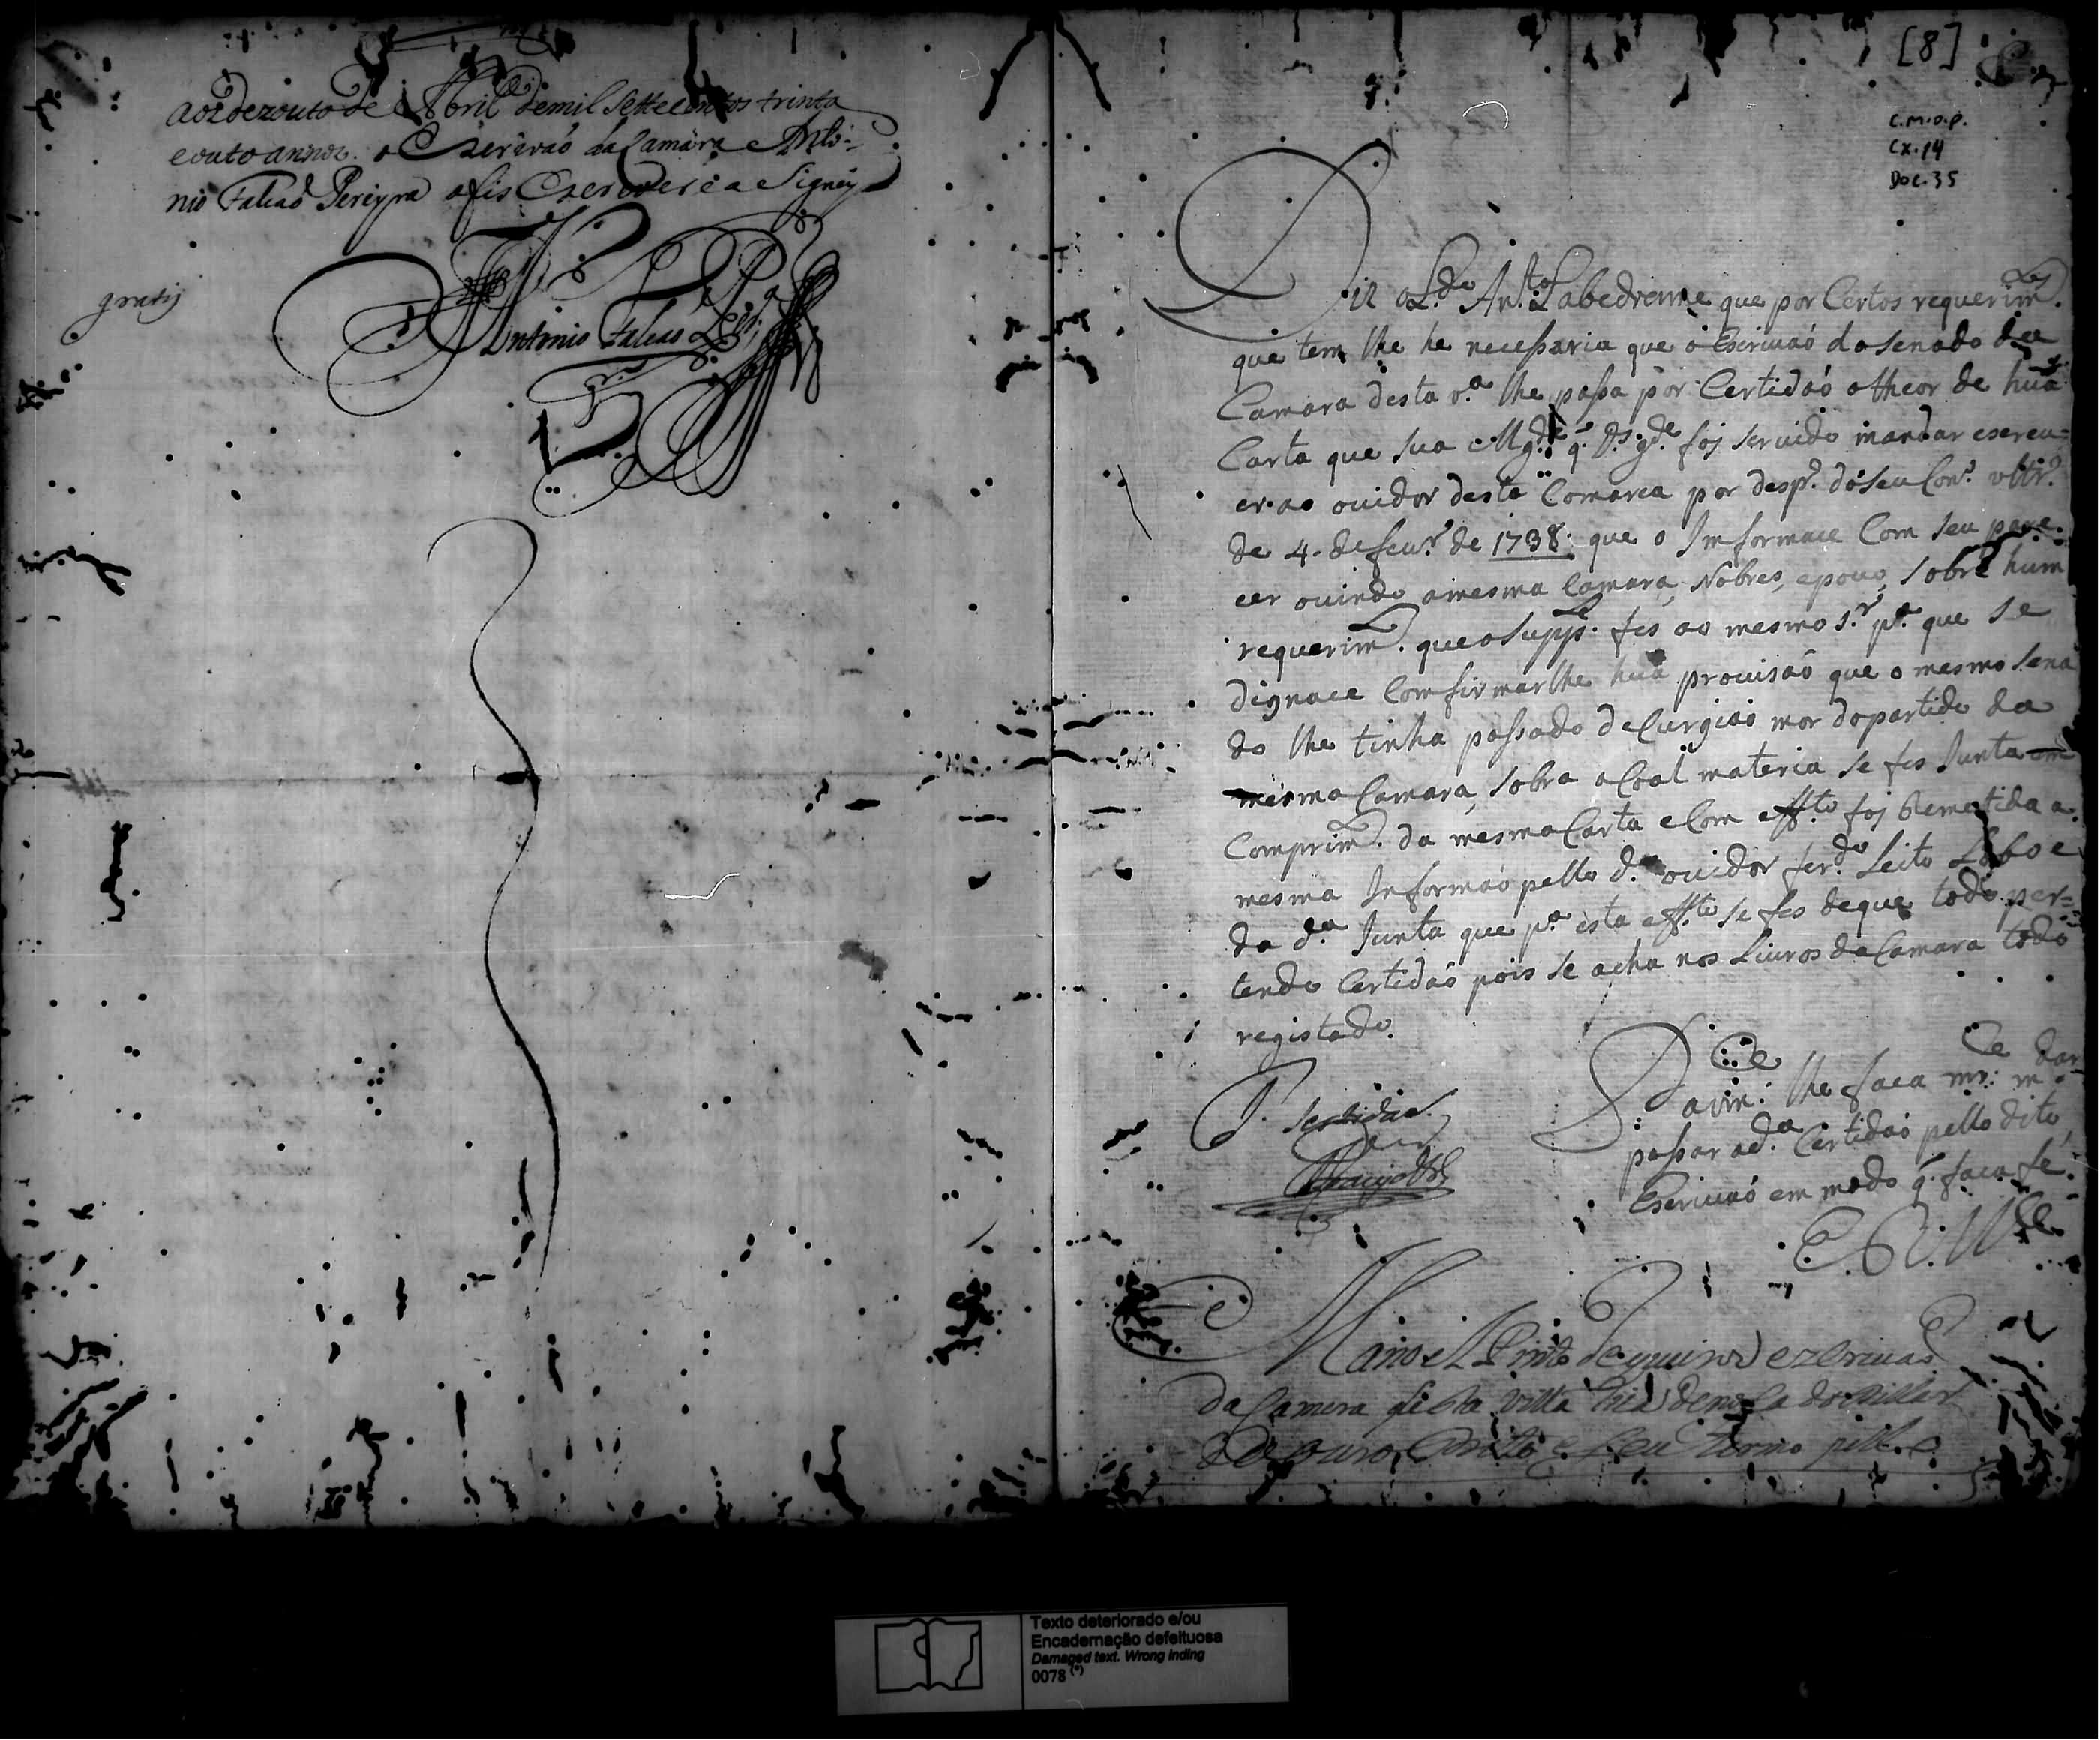 aos dezouto de Abril de mil Sette centos trinta
e outo annos. o Escrivaõ da Camara Anto-
nio Falcaõ Pereyra o fis Escrever e a Signey
gratis
Antonio Falcaõ Per.ª
[8]
C.M.O.P.
CX.14
DOC.35
Diz o L.do An.to Labedrenne que por Certos requerim.tos
que tem lhe he necessaria que o Escrivaó do senado da
Camara desta v.ª lhe passa por Certidaó o theor de huã
Carta que sua Mg.de q̃ D.s g.de foj servido mandar escrev=
er ao ouvidor desta Comarca por desp.º do seu Con.º ultr.º
de 4. de fevr.º de 1738. que o Imformace Com seu pare.
cer ouvindo a mesma Camara, Nobres, e povo, sobre hum
requerim.to que o supp.te fes ao mesmo s.r p.ª que se
dignace Comfirmarlhe huã provisaõ que o mesmo sena
do lhe tinha passado de Curgiaõ mor do partido da
mesma Camara, sobra a Coal materia se fes Junta em
Comprim.to da mesma Carta e Com eff.to foj Remetida a
mesma Informaõ pello d.º ouvidor fer.do Leite Lobo e
da d.ª Junta que p.ª esta eff.to se fes de que todo per=
tende Certidaõ pois se acha nos Livros da Camara todo
registado.
P. Sertidaõ.
P a vm.ce lhe faca m.ce mandar
passar a d.ª Certidaó pello dito
Escrivaó em modo q̃ faca fe.
E. R. M.ce
Manoel Pinto de queiros ezcrivaõ
da Camera desta villa Rica de nosa do Pillar
do ouro Preto e seu termo
Texto deteriorado e/ou
Encadernação defeituosa
Damaged text. Wrong inding
0078 (*)